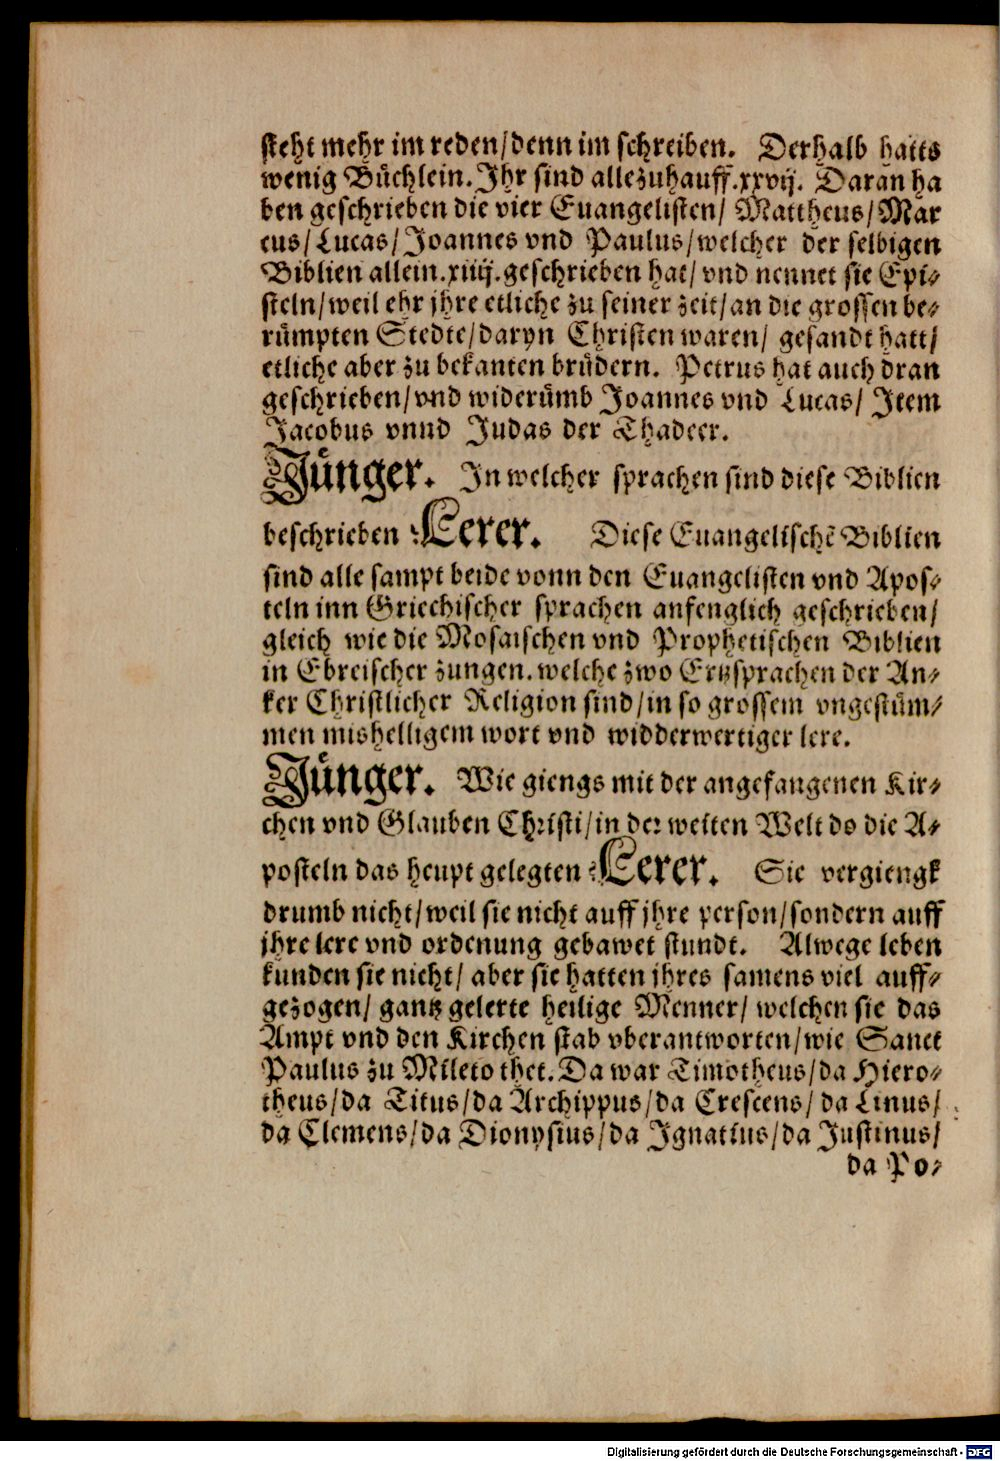 steht mehr im reden/denn im schreiben. Derhalb hatts
wenig Bůchlein. Ihr sind allezuhauff.xxvij. Daran ha
ben geschrieben die vier Euangelisten/ Mattheus/Mar
cus/Lucas/Joannes vnd Paulus/welcher der selbigen
Biblien allein.xiiij.geschrieben hat/vnd nennet sie Epi-
steln/weil ehr jhre etliche zu seiner zeit/an die grossen be-
růmpten Stedte/daryn Christen waren/ gesandt hatt/
etliche aber zu bekanten brůdern. Petrus hat auch dran
geschrieben/vnd widerůmb Joannes vnd Lucas/ Item
Jacobus vnnd Judas der Thadeer.
Jůnger. In welcher sprachen sind diese Biblien
beschrieben? Lerer. Diese Euangelischẽ Biblien
sind alle sampt beide vonn den Euangelisten vnd Apos-
teln inn Griechischer sprachen anfenglich geschrieben/
gleich wie die Mosaischen vnd Prophetischen Biblien
in Ebreischer zungen. welche zwo Ertzsprachen der An-
ker Christlicher Religion sind/in so grossem vngestům-
men mishelligem wort vnd widderwertiger lere.
Jůnger. Wie giengs mit der angefangenen Kir-
chen vnd Glauben Christi/in der weiten Welt do die A-
posteln das heupt gelegten? Lerer. Sie vergiengk
drumb nicht/weil sie nicht auff jhre person/sondern auff
jhre lere vnd ordenung gebawet stundt. Alwege leben
kunden sie nicht/ aber sie hatten jhres samens viel auff-
gezogen/ gantz gelerte heilige Menner/ welchen sie das
Ampt vnd den Kirchen stab vberantworten/wie Sanct
Paulus zu Mileto thet. Da war Timotheus/da Hiero-
theus/da Titus/da Archippus/da Crescens/ da Linus/
da Clemens/da Dionysius/da Ignatius/da Justinus/
da Po-
Digitalisierung gefördert durch die Deutsche Forschungsgemeinschaft - DFG